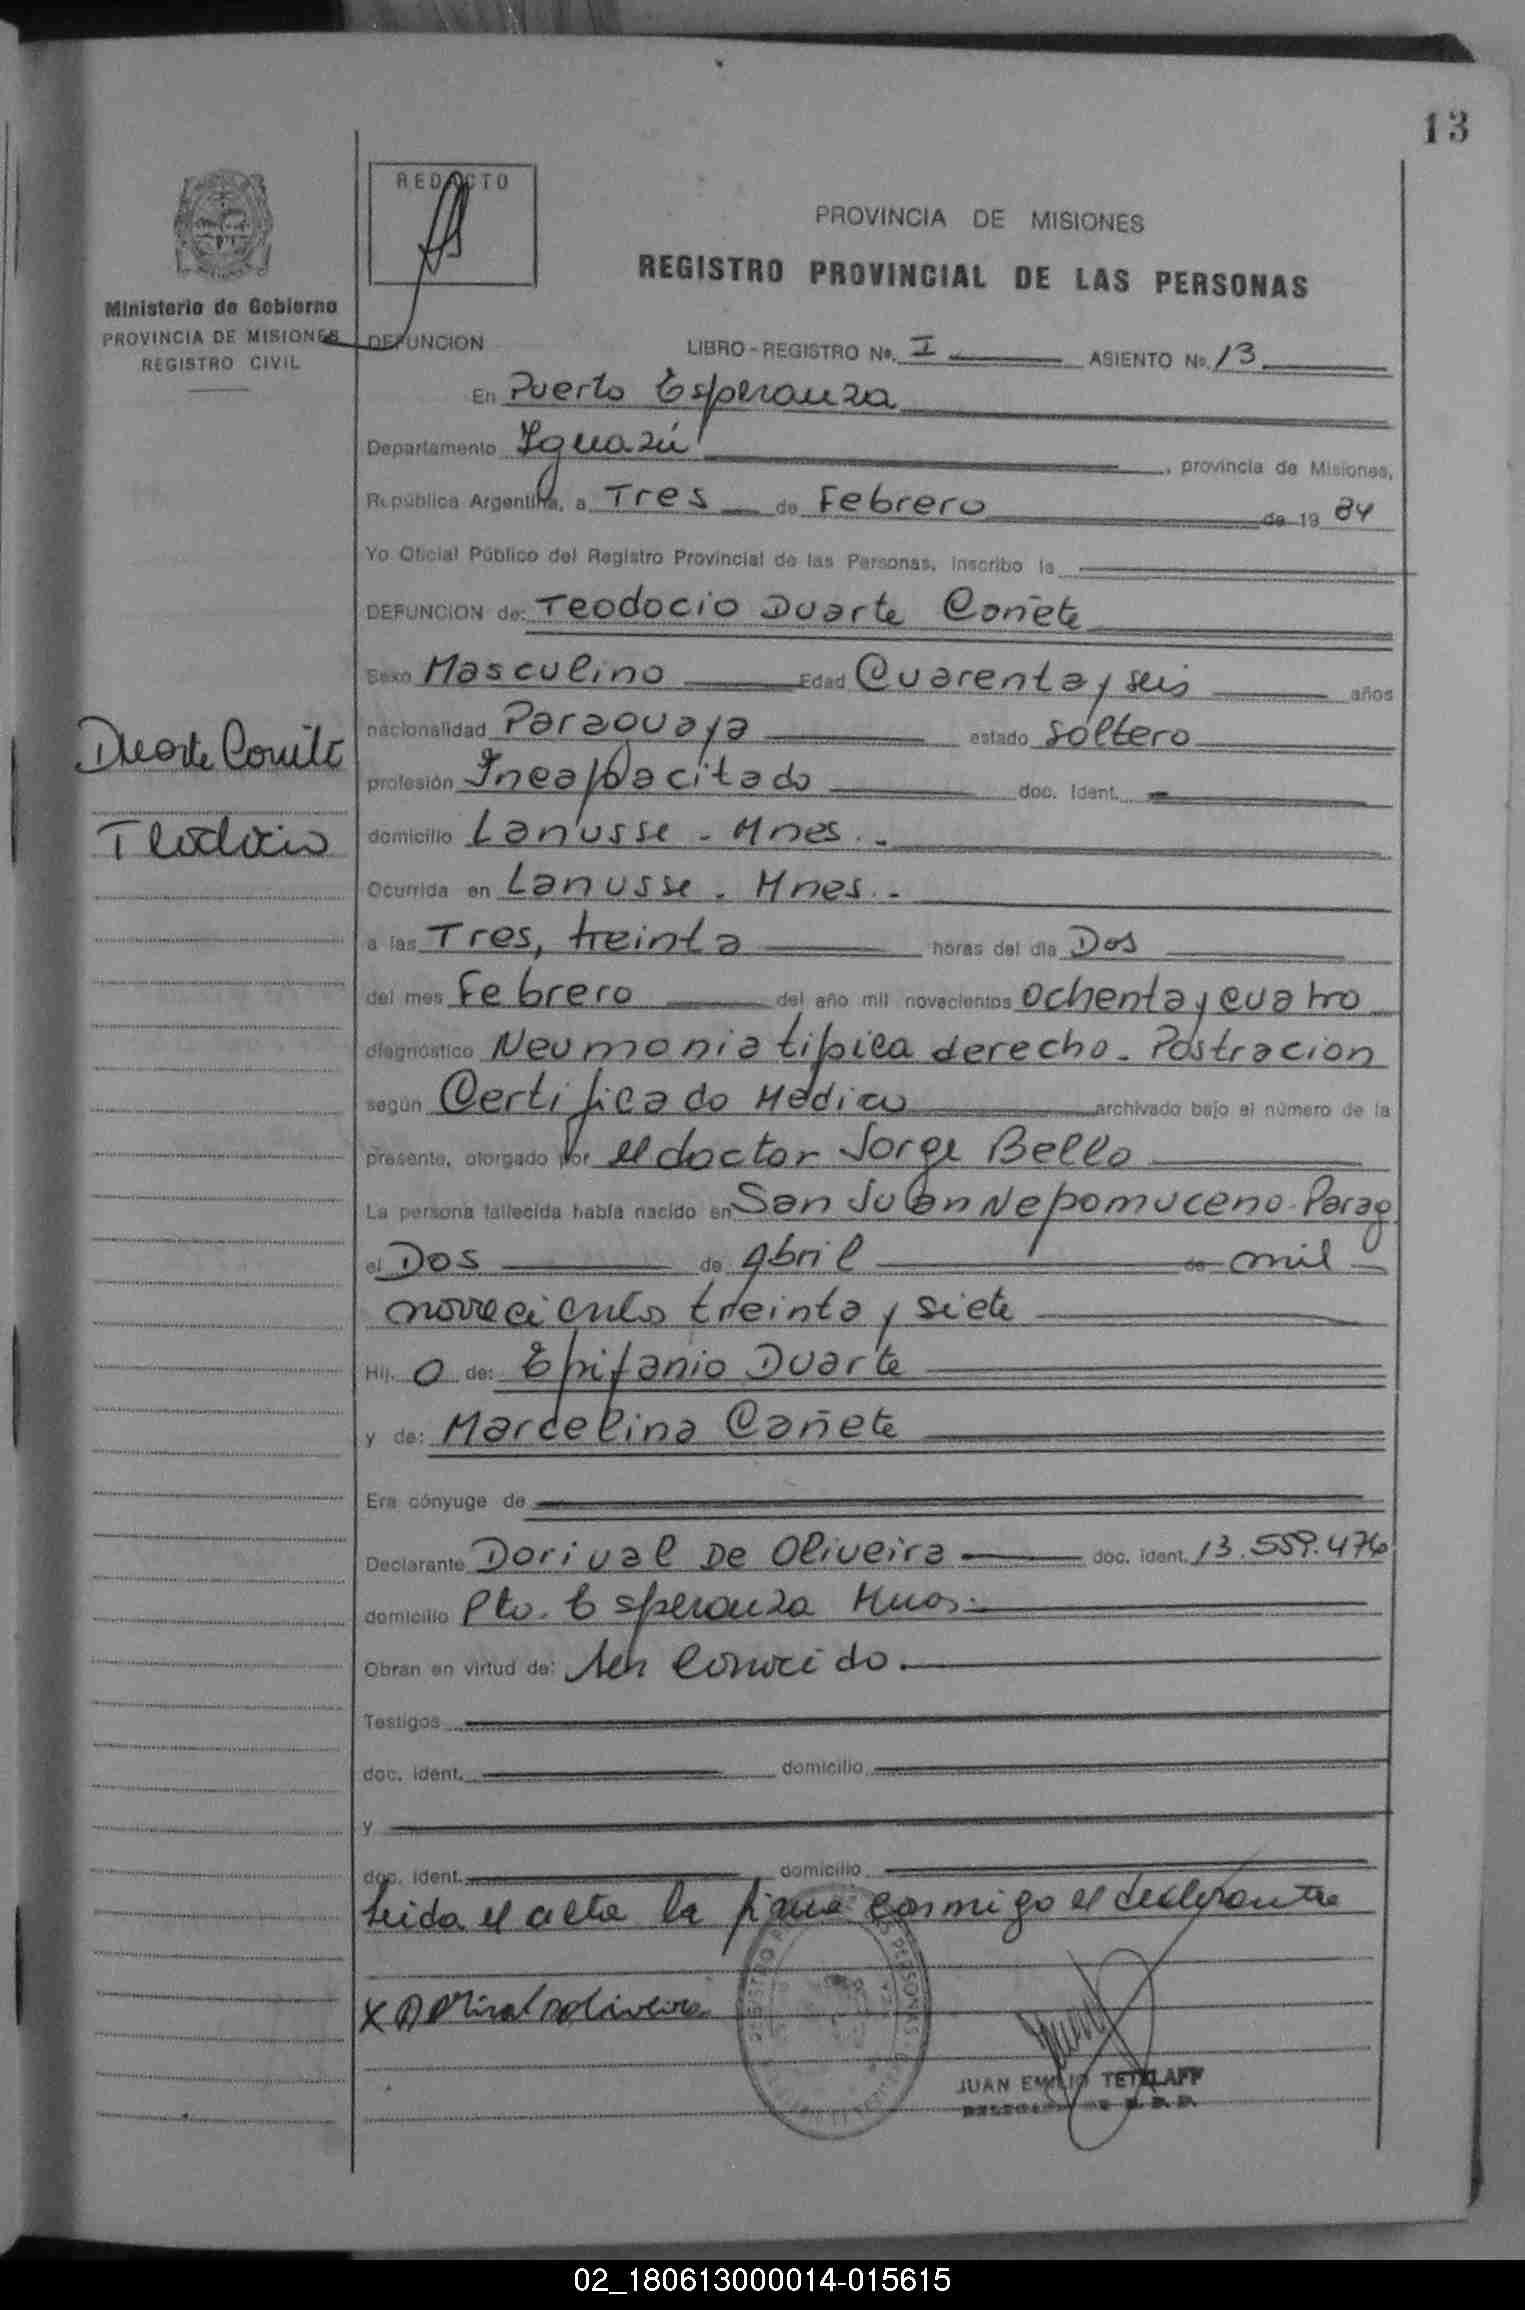 13
REDACTO
PROVINCIA DE MISIONES
REGISTRO PROVINCIAL DE LAS PERSONAS
Ministerio de Gobierno
PROVINCIA DE MISIONES
REGISTRO CIVIL
DEFUNCION LIBRO - REGISTRO No. I ASIENTO No. 13
En Puerto Esperanza
Departamento Iguazú, provincia de Misiones,
República Argentina, a Tres de Febrero de 19 84
Yo Oficial Público del Registro Provincial de las Personas, inscribo la
DEFUNCION de: Teodocio Duarte Cañete
Sexo Masculino Edad Cuarenta y seis años
nacionalidad Paraguaya estado soltero
Duarte Cañete
profesión Incapacitado doc. ident.
Teodocio
domicilio Lanusse - Mnes. -
Ocurrida en Lanusse - Mnes. -
a las Tres, treinta horas del día Dos
del mes Febrero del año mil novecientos ochenta y cuatro
diagnóstico Neumonia tipica derecho - Postracion
según Certificado Médico archivado bajo el número de la
presente, otorgado por el doctor Jorge Bello
La persona fallecida había nacido en San Juan Nepomuceno - Parag
el Dos de Abril de mil
novecientos treinta y siete
Hij. o de: Epifanio Duarte
y de: Marcelina Cañete
Era cónyuge de
Declarante Dorival De Oliveira doc. ident. 13.559.476
domicilio Pto. Esperanza Mnes.
Obran en virtud de: ser conocido.
Testigos
doc. ident. domicilio
y
doc. ident. domicilio
Leida el acta la firma conmigo el declarante
X Dorival Doliveira
JUAN EMILIO TETZLAFF
02_180613000014-015615